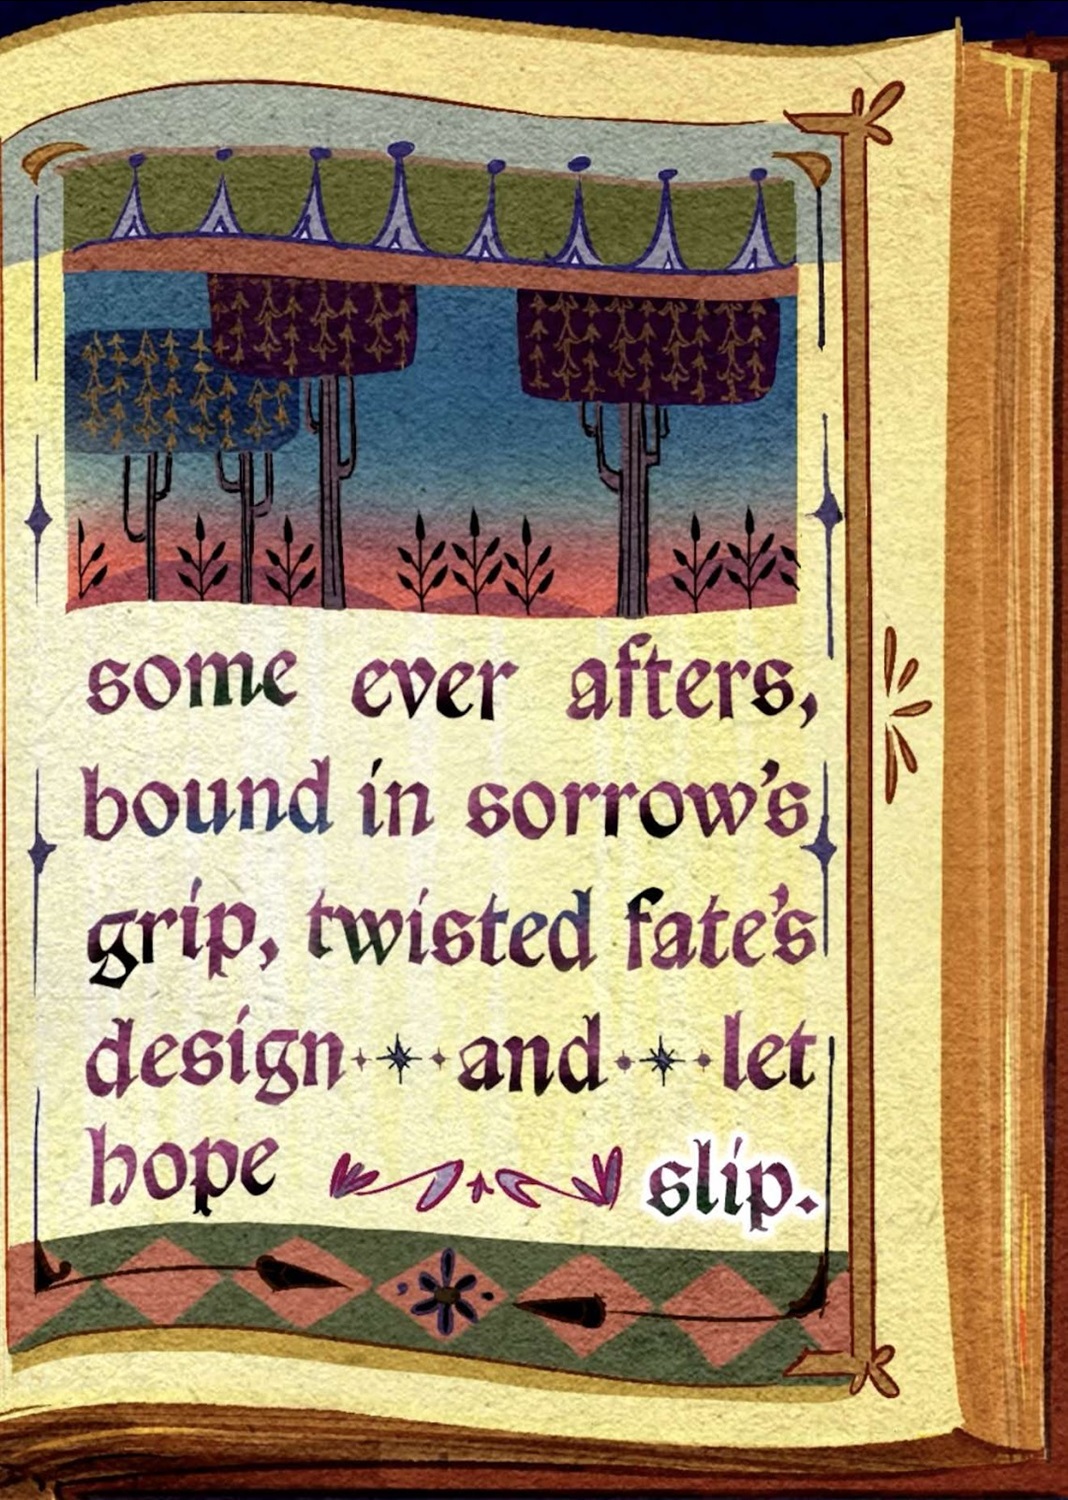 some ever afters,
bound in sorrow's
grip, twisted fate's
design and let
hope slip.